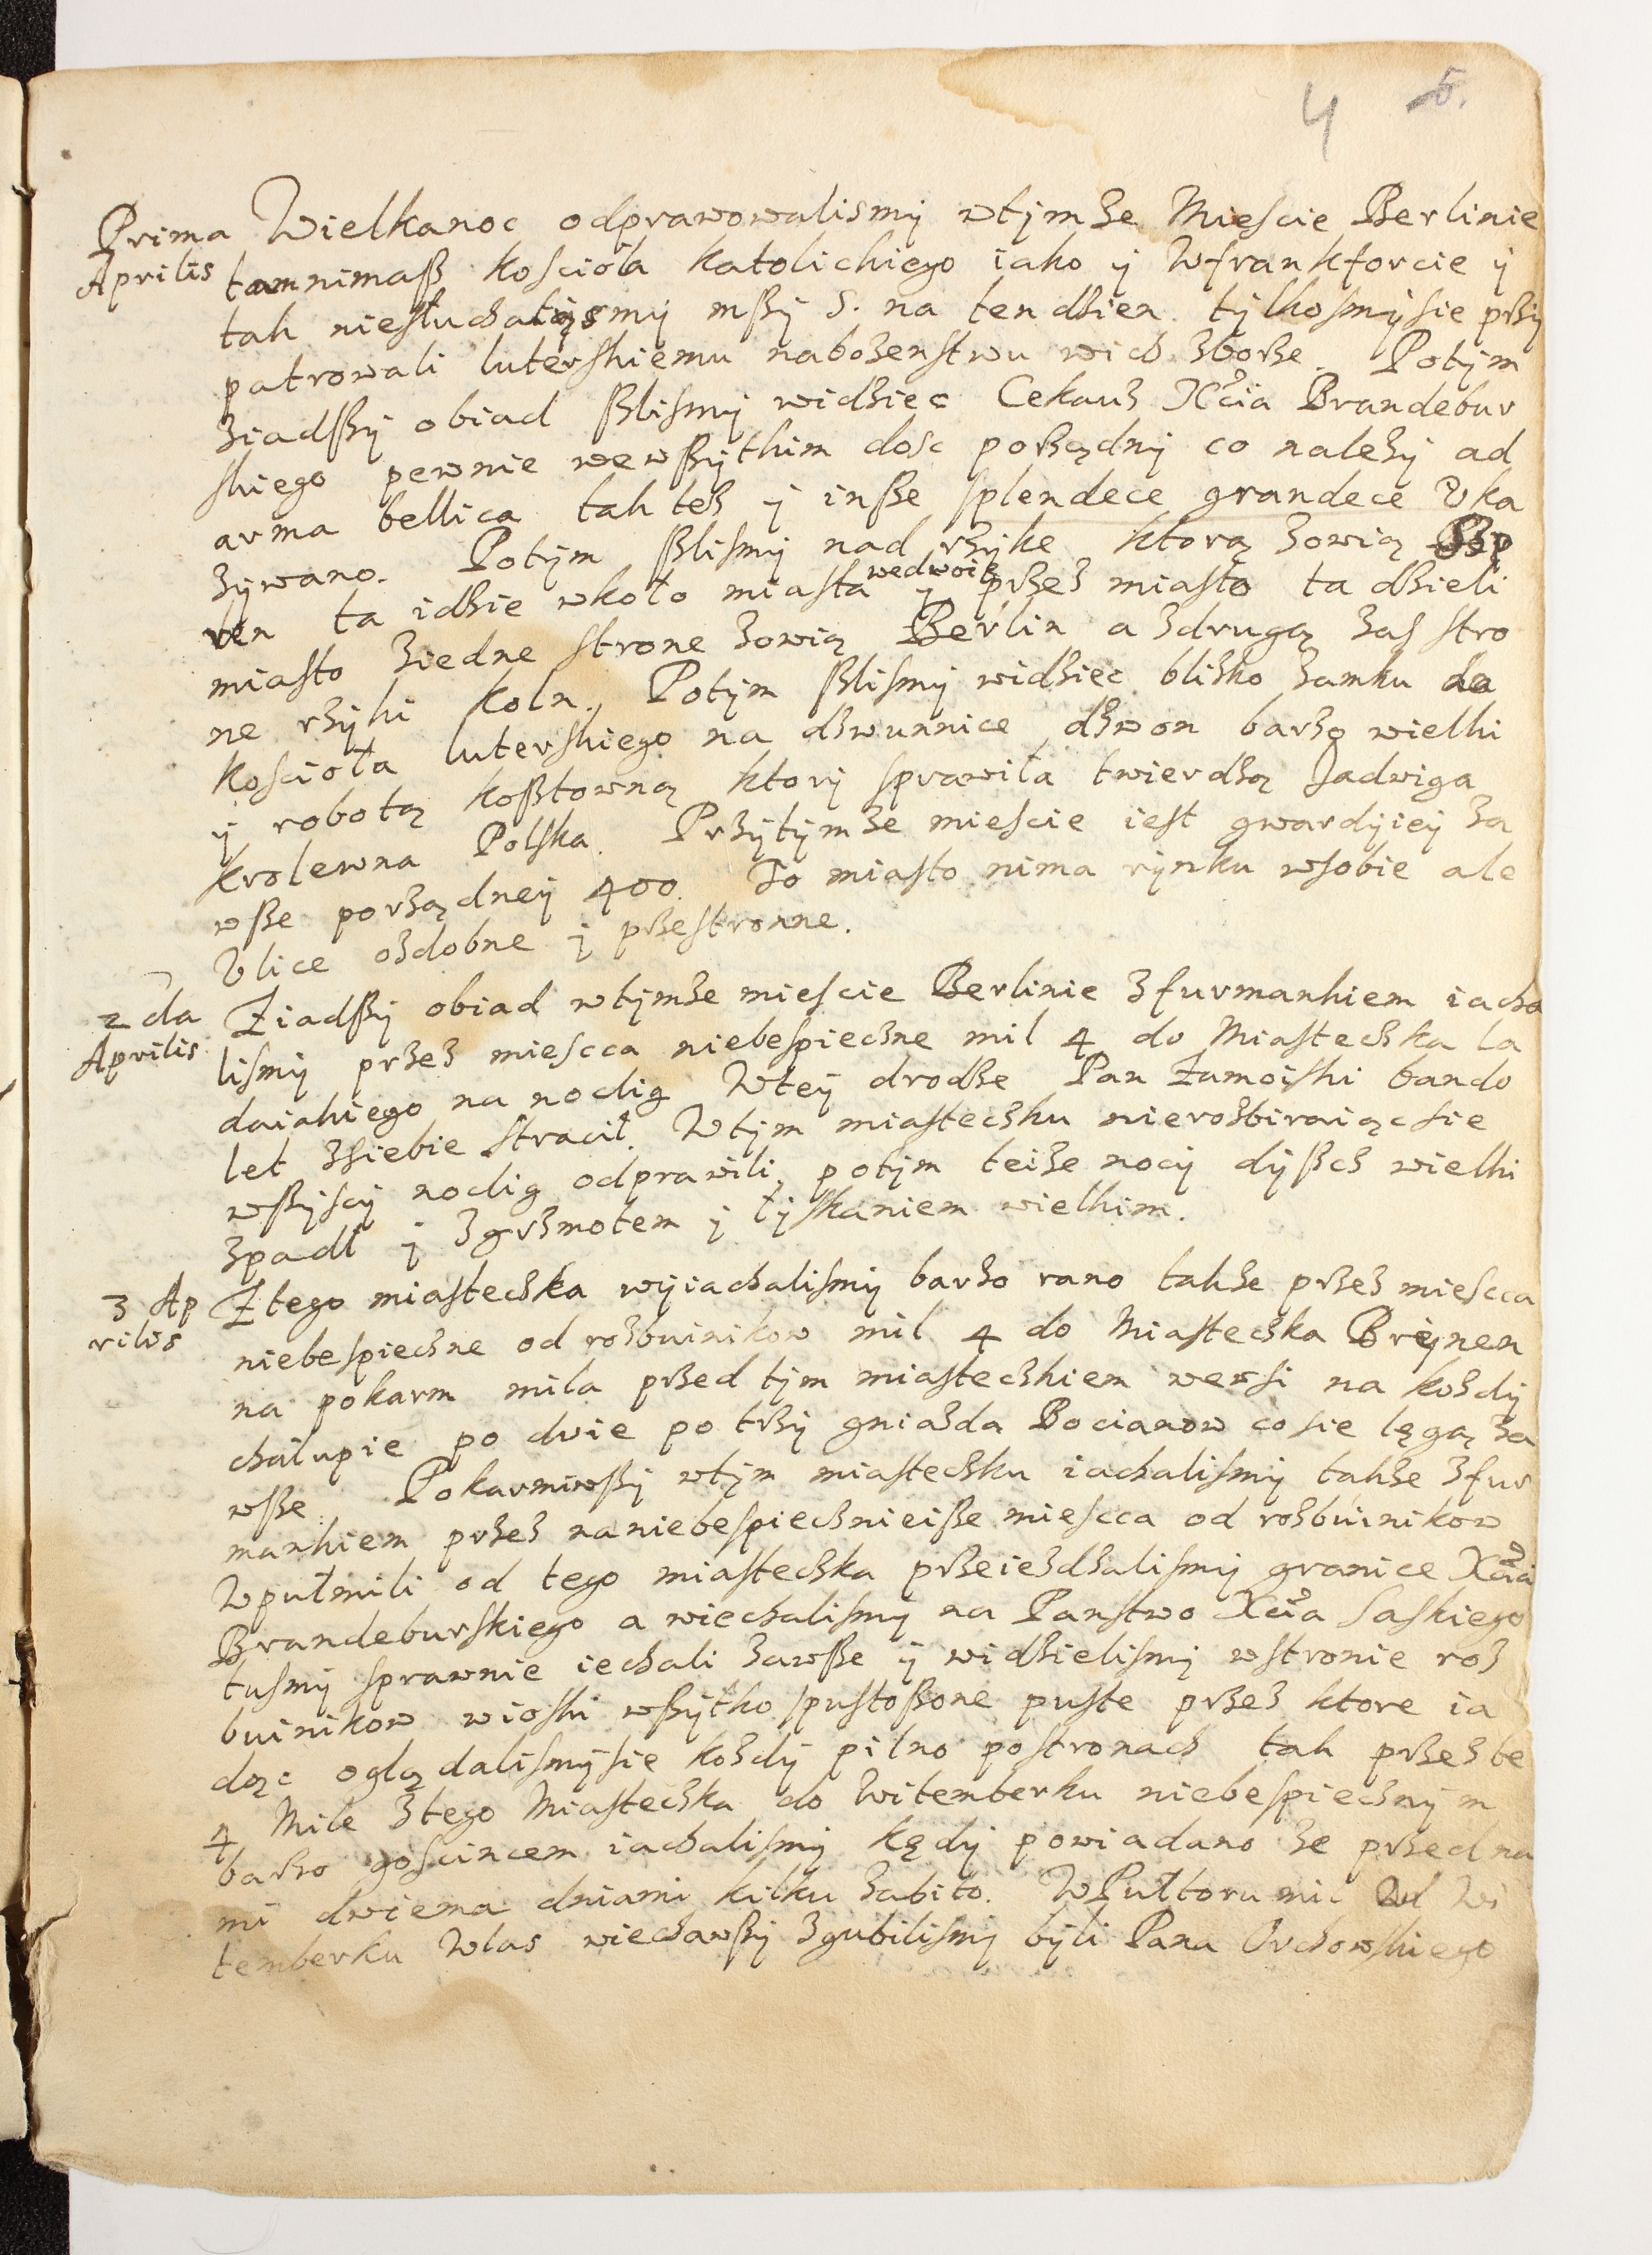 4 5.
Prima Wielkanoc odprawowalismÿ wtÿmze Miescie Berlinie
Aprilis tamnimaß kosciola katolickiego iako ÿ Wfrankforcie ÿ
tak niesłuchalismÿ mßÿ S. na ten dzien. tÿlkosmÿsie przÿ
patrowali luterskiemu nabozenstwu wich zborze. Potÿm
ziadßÿ obiad ßlismÿ widziec Cekauz Xcia Brandebur
skiego pewnie wewßÿtkim dosc porządnÿ co nalezÿ ad
arma bellica tak tez ÿ inße splendece grandece Vka
zÿwano. Potÿm ßlismÿ nad rzÿke ktorą zowią Sp
ren ta idzie wkoło miasta ÿ wedwoie przez miasto ta dzieli
miasto ziedne strone zowią Berlin a zdrugą zas stro
ne rzÿki Koln. Potÿm ßlismÿ widziec blisko zamku do
kosciola luterskiego na dzwunnice dzwon barzo wielki
ÿ robotą koßtowną ktorÿ sprawiła twierdzą Jadwiga
krolewna Polska. Przÿtÿmze miescie iest gwardÿieÿ za
wße porządneÿ 400. To miasto nima rÿnku wsobie ale
Vlice ozdobne ÿ przestronne.
2da Ziadßÿ obiad wtÿmze miescie Berlinie zfurmankiem iacha
Aprilis lismÿ przez miescca niebespieczne mil 4 do Miasteczka la
daiakiego na noclig Wteÿ drodze Pan Zamoiski bando
let zsiebie stracił. Wtÿm miasteczku nierozbiraiącsie
wßÿscÿ noclig odprawili, potÿm teize nocÿ dÿßcz wielki
zpadl ÿ zgrzmotem ÿ łÿskaniem wielkim.
3 Ap Ztego miasteczka wÿiachalismÿ barzo rano takze przez miescca
rilis niebespieczne od rozbuinikow mil 4 do Miasteczka Breÿnen
na pokarm mila przed tÿm miasteczkiem wewsi na kozdÿ
chałupie po dwie po trzÿ gniazda Bocianow co sie lęgą za
wße. Pokarmiwßÿ wtÿm miasteczku iachalismÿ takze zfur
mankiem przez naniebespiecznieiße miescca od rozbuinikow
Wpułmili od tego miasteczka przeiezdzalismÿ granice Xcia
Brandeburskiego a wiechalismÿ na Panstwo Xcia Saskiego
tusmÿ sprawnie iechali zawße ÿ widzielismÿ wstronie roz
buinikow wioski wßÿtko spustoßone puste przez ktore ia
dąc oglądalismÿsie kozdÿ pilno postronach tak przez te
4 Mile ztego Miasteczka do Witemberku niebespiecznÿm
barzo goscincem iachalismÿ kędÿ powiadano ze przed na
mi dwiema dniami kilku zabito. WPułtoru mil Wi
temberku Wlas wiechawßÿ zgubilismÿ bÿli Pana Orchowskiego